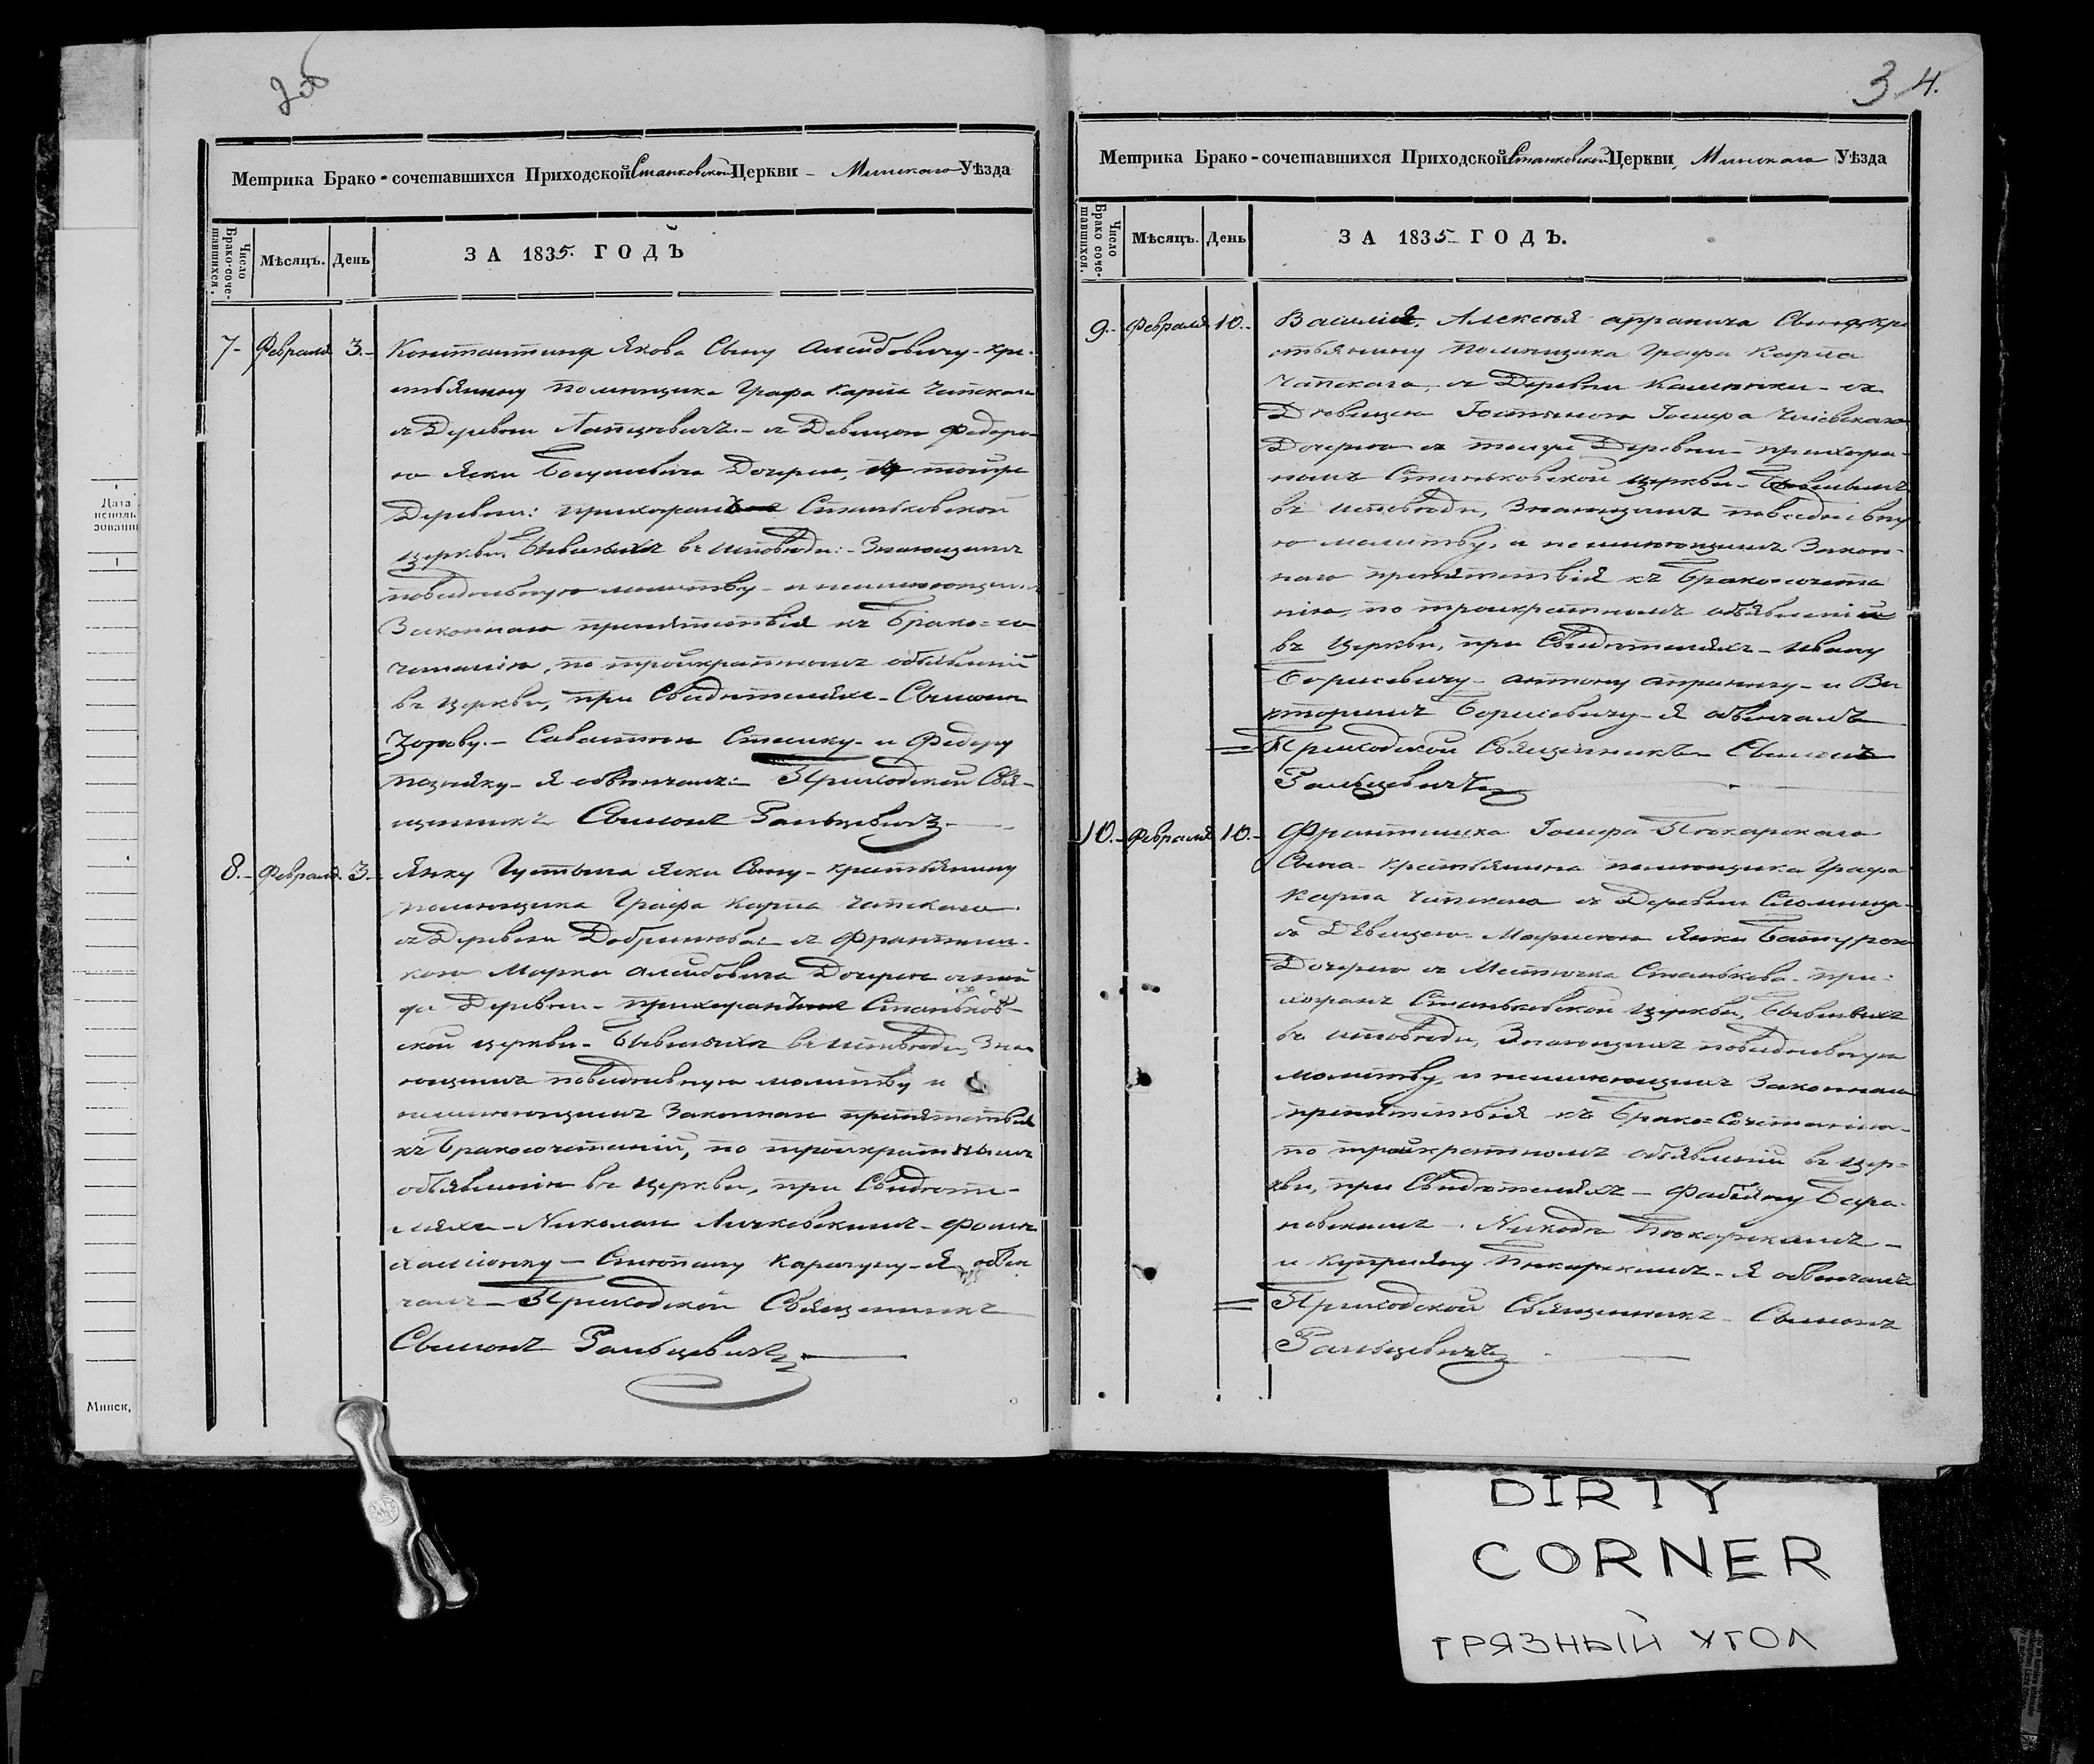 2об
Метрика Брако-сочетавшихся Приходской Станковской Церкви – Минскаго Уѣзда
Число Брако-соче-тавшихся.
Мѣсяцъ.
День
ЗА 1835. ГОДЪ
7- Февраля 3.-
Константина Якова Сыну Алсибовичу - кре-
стьянину помѣщика Графа Карла Чапскаго
съ Деревни - съ Девицою Федоро-
ю Яски Дочерью, тойже
Деревни: прихожан Станьковской
церкви. Бывшихъ въ исповѣди: - Знающимъ
повседневную молитву - и неимеющимъ
Законнаго препятствія къ Брако=со
четанію, по троикратномъ объявленіи
въ церкви, при Свидѣтеляхъ - Сымону
- и Федору
позняку - Я обвѣнчалъ: - Приходской Свя-
щенникъ Сымонъ Ральцевичъ.
8.- Февраля. 3.-
Янку Яски Сыну - крестьянину
помѣщика Графа Карла Чапскаго
съ Деревни Добринева: - съ Францишк-
кою Марка Алсибовича Дочерью стой
же Деревни - прихожан Станьков-
ской церкви - Бывшихъ въ исповѣди, Зна
ющимъ повседневную молитву и
неимеющимъ Законнаго препятствія
къ Бракосочетаній, по троикратнымъ
объявленію въ церкви, при Свидѣте-
ляхъ - Николаи - Фомѣ
- Степану Карачуну - Я обвѣн
чалъ - Приходской Священникъ
Сымонъ Ральцевичъ
3 4.
Метрика Брако-сочетавшихся Приходской Станковской Церкви, Минскаго Уѣзда
Число Брако соче-тавшихся.
Мѣсяцъ.
День
ЗА 1835 ГОДЪ.
9.- Февраля 10.-
Василия, Алексѣя Сыну кре
стьянину помѣщика Графа Карла
Чапскаго, съ Деревни Каменки - съ
Девицею Іосифа
Дочерью съ тоейже Деревни - прихожа-
номъ Станьковской церкви - Бывшимъ
въ исповѣди, Знающимъ повседневну
ю молитву, и неимеющимъ Закон-
наго препятствія къ Брако=сочета
нію, по троикратномъ объявленіи
въ церкви, при Свидѣтеляхъ - Ивану
Борисевичу - антону - и Ви
кторимъ Борисевичу - Я обвенчалъ
Приходской Священникъ - Сымонъ
Ральцевичъ
10.- Февраля 10.-
Франтишка Іосифа Пекарскаго
Сына - крестьянина помѣщика Графа
Карла Чапскаго съ Деревни
съ Дѣвицею Марисею Янки
Дочерью съ Местечка Станькова - при-
хожанъ Станьковской церкви, Бывшихъ
въ исповѣди, Знающихъ повседневную
молитву, и неимеющимъ Законнаго
препятствія къ Брако=Сочетанію -
по троикратномъ объявленіи въ цер-
кви, при Свидѣтеляхъ - Фабіяну Бара-
новскимъ - Никодѣ Пекарскимъ -
и Купрыяну Пекарскимъ - Я обвенчалъ
Приходской Священникъ - Сымонъ
Ральцевичъ
Дата
исполь-
зования
Минск,
DIRTY
CORNER
ГРЯЗНЫЙ УГОЛ